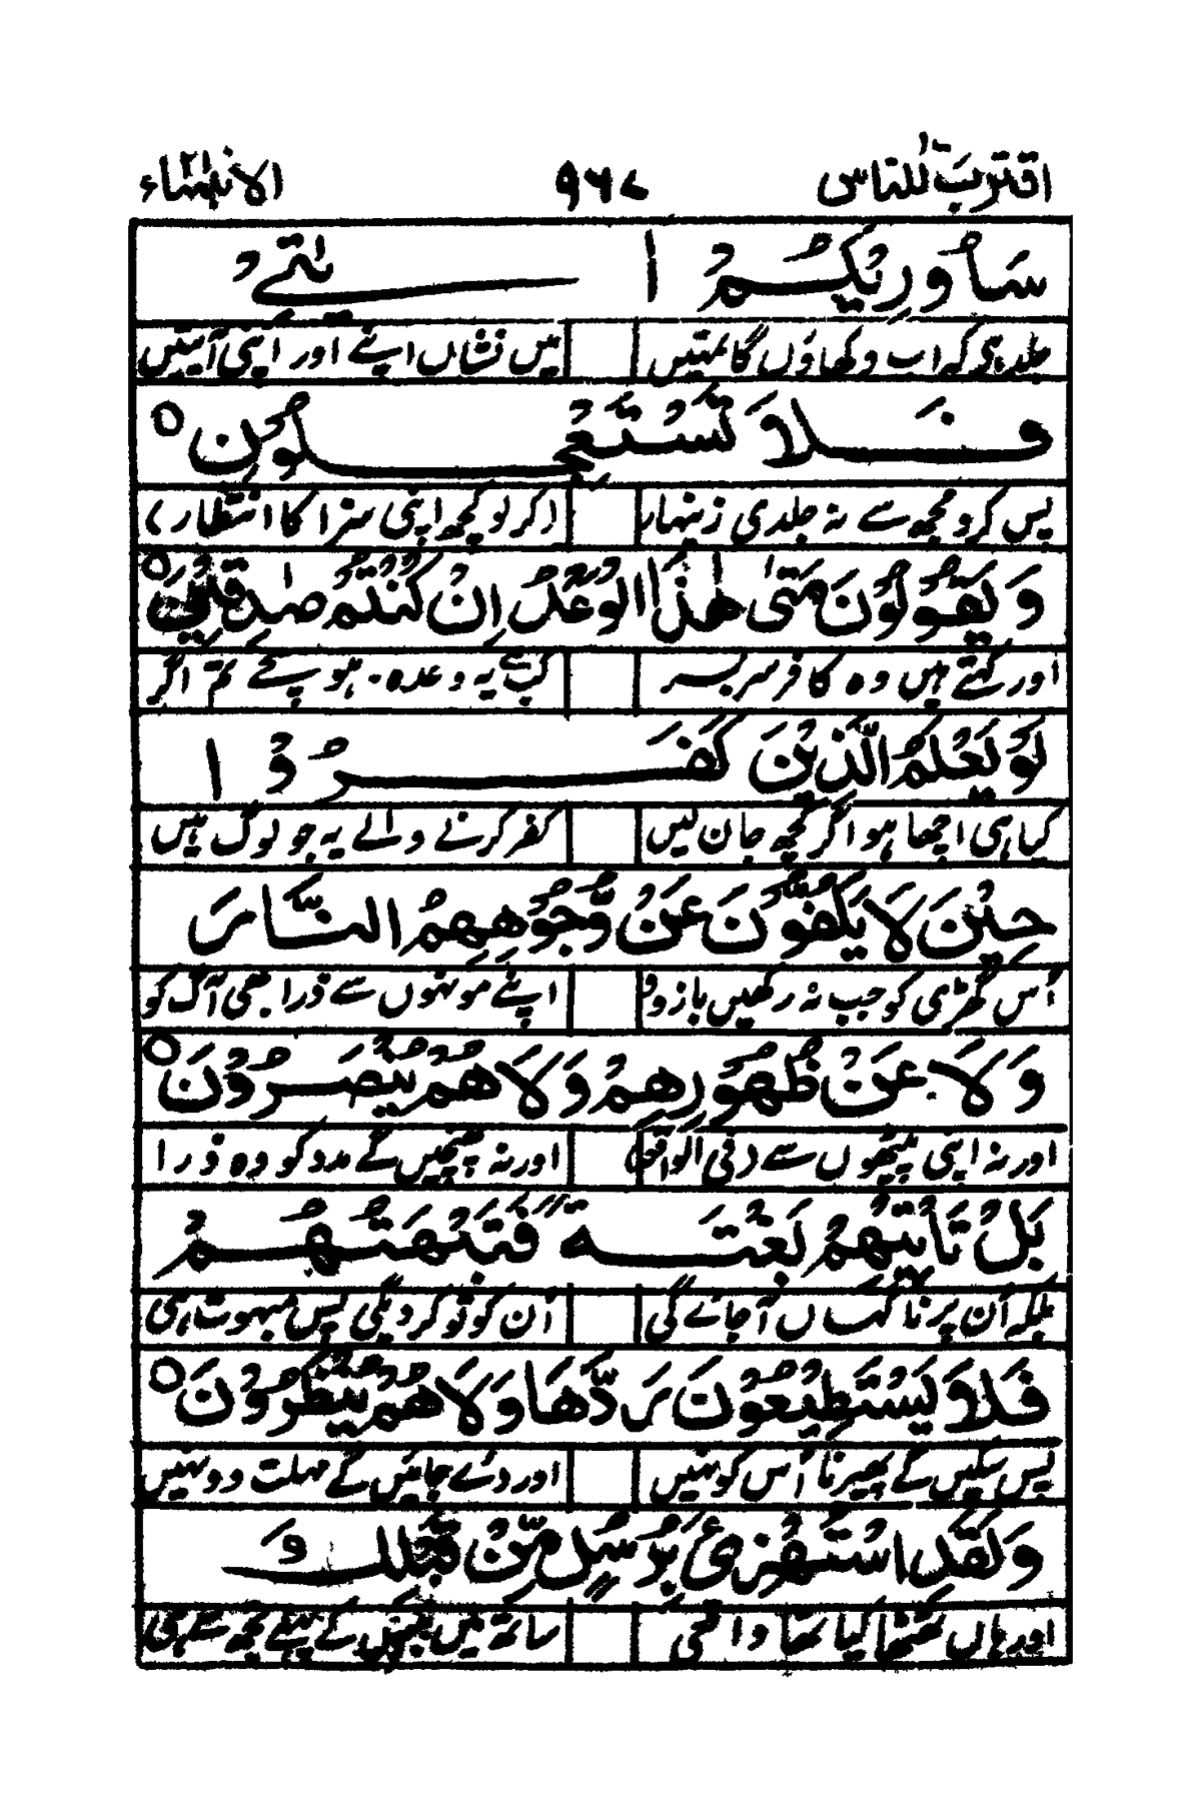 اقترب للناس ٩٦٧ الانبیاء ٢١
سَاُورِیْکُمْ اٰیٰتِیْ
جلد ہی کہ اب دکھاؤں گا تمہیں ہیں نشاں اپنے اور اپنی آیتیں
فَلَا تَسْتَعْجِلُوْنِ ○
پس کرو مجھ سے نہ جلدی زنہار (کر لو کچھ اپنی سزا کا انتظار)
وَ یَقُوْلُوْنَ مَتٰی ھٰذَا الْوَعْدُ اِنْ کُنْتُمْ صٰدِقِیْنَ ○
اور کہتے ہیں وہ کافر سربسر کب ہے یہ وعدہ۔ ہو سچے تم اگر
لَوْ یَعْلَمُ الَّذِیْنَ کَفَرُوْا
کیا ہی اچھا ہو اگر کچھ جان لیں کفر کرنے والے یہ جو لوگ ہیں
حِیْنَ لَا یَکُفُّوْنَ عَنْ وُّجُوْھِھِمُ النَّارَ
اُس گھڑی کو جب نہ رکھیں باز وو اپنے مونہوں سے ذرا بھی آگ کو
وَ لَا عَنْ ظُھُوْرِھِمْ وَلَا ھُمْ یُنْصَرُوْنَ ○
اور نہ اپنی پیٹھوں سے (فی الواقع) اور نہ پہنچیں گے مدد کو وہ ذرا
بَلْ تَاْتِیْھِمْ بَغْتَةً فَتَبْھَتُھُمْ
بلکہ اُن پر ناگہاں آجائے گی اُن کو تو کر دیگی پس مبہوت ہی
فَلَا یَسْتَطِیْعُوْنَ رَدَّھَا وَلَا ھُمْ یُنْظَرُوْنَ ○
پس سکیں گے پھیرنا اُس کو نہیں اور دئے جائیں گے مہلت وو نہیں
وَلَقَدِ اسْتُھْزِئَ بِرُسُلٍ مِّنْ قَبْلِکَ وَ
اور ہاں ٹھٹھا کیا تھا واقعی ساتھ میں کے پہلے کچھ سے ہی